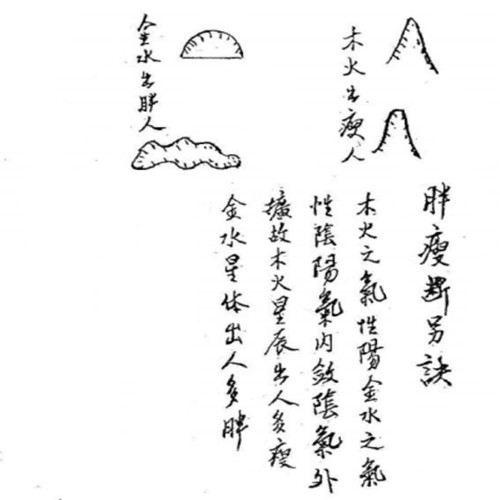 木火出瘦人
金水出胖人
胖瘦断另訣
木火之氣性陽金水之氣
性陰陽氣内斂陰氣外
擴故木火星辰出人多瘦
金水星体出人多胖